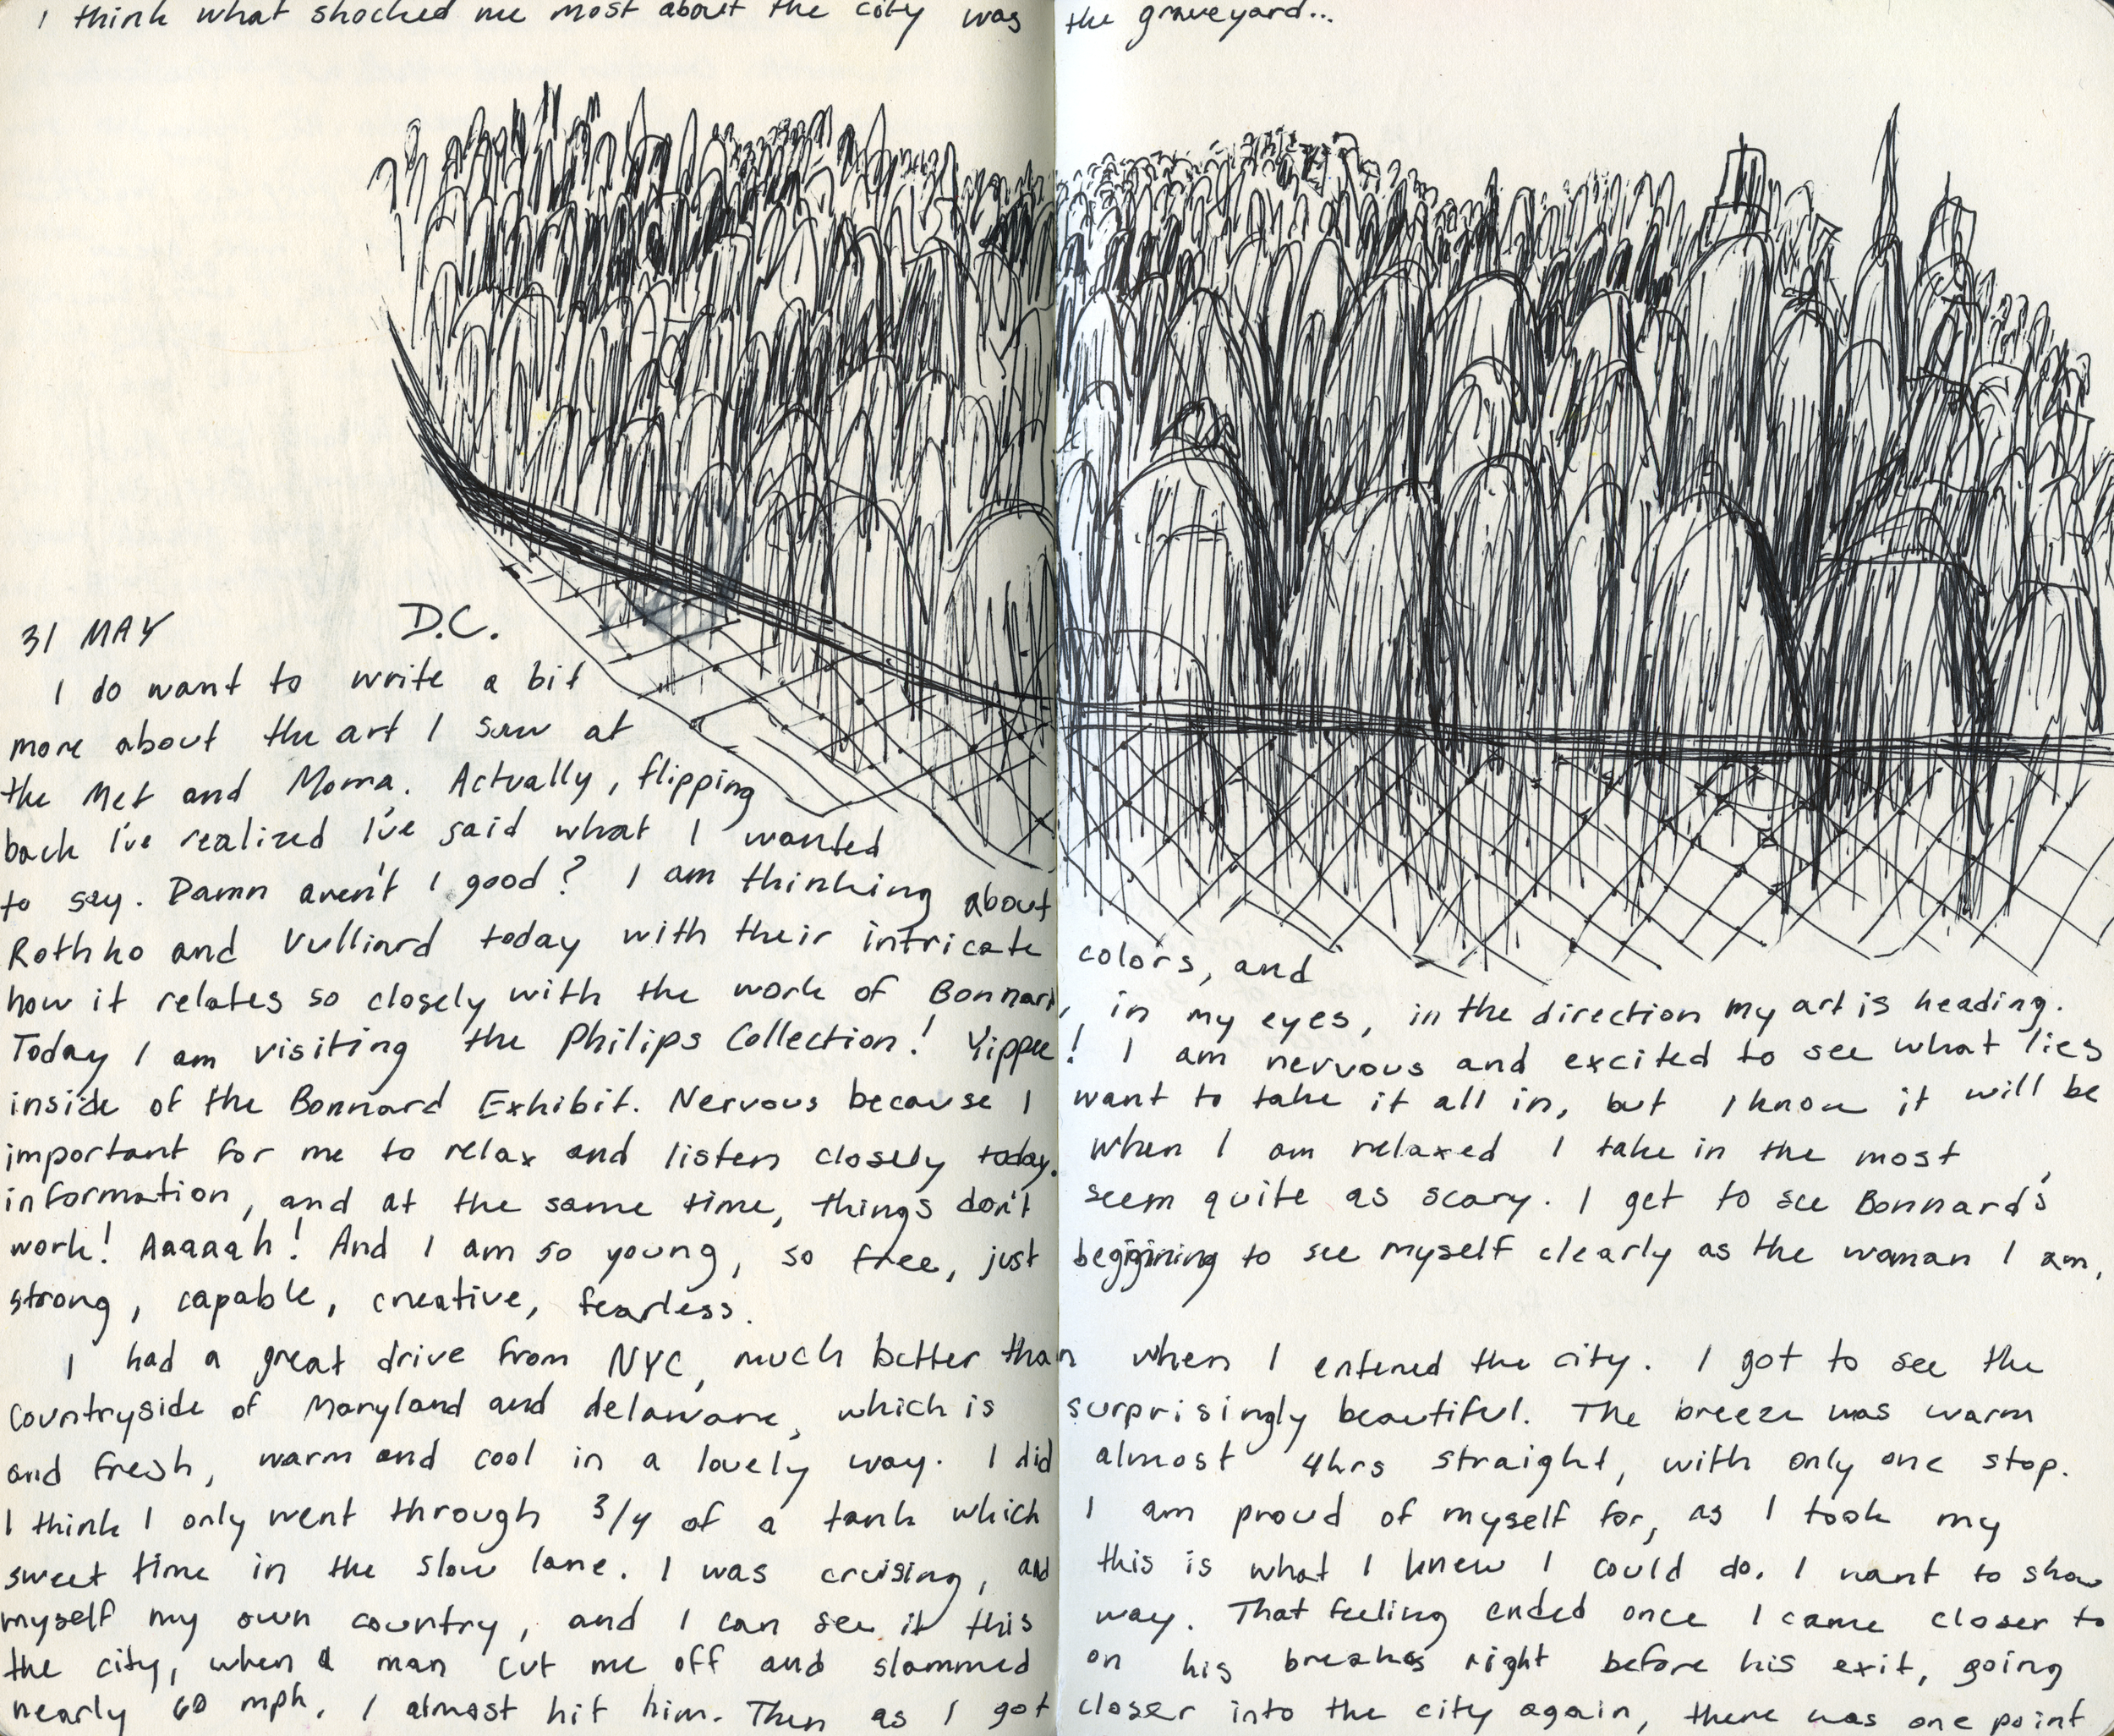 I think what shocked me most about the city was the graveyard...
31 MAY D.C.
I do want to write a bit
more about the art I saw at
the Met and Moma. Actually, flipping
back I've realized I've said what I wanted
to say. Damn aren't I good? I am thinking about
Rothko and Vulliard today with their intricate colors, and
how it relates so closely with the work of Bonnard, in my eyes, in the direction my art is heading.
Today I am visiting the Philips Collection! Yippee! I am nervous and excited to see what lies
inside of the Bonnard Exhibit. Nervous because I want to take it all in, but I know it will be
important for me to relax and listen closely today. When I am relaxed I take in the most
information, and at the same time, things don't seem quite as scary. I get to see Bonnard's
work! Aaaaah! And I am so young, so free, just beggining to see myself clearly as the woman I am,
strong, capable, creative, fearless.
I had a great drive from NYC, much better than when I entered the city. I got to see the
countryside of Maryland and delaware, which is surprisingly beautiful. The breeze was warm
and fresh, warm and cool in a lovely way. I did almost 4hrs straight, with only one stop.
I think I only went through 3/4 of a tank which I am proud of myself for, as I took my
sweet time in the slow lane. I was cruising, and this is what I knew I could do. I want to show
myself my own country, and I can see it this way. That feeling ended once I came closer to
the city, when a man cut me off and slammed on his breakes right before his exit, going
nearly 60 mph. I almost hit him. Then as I got closer into the city again, there was one point